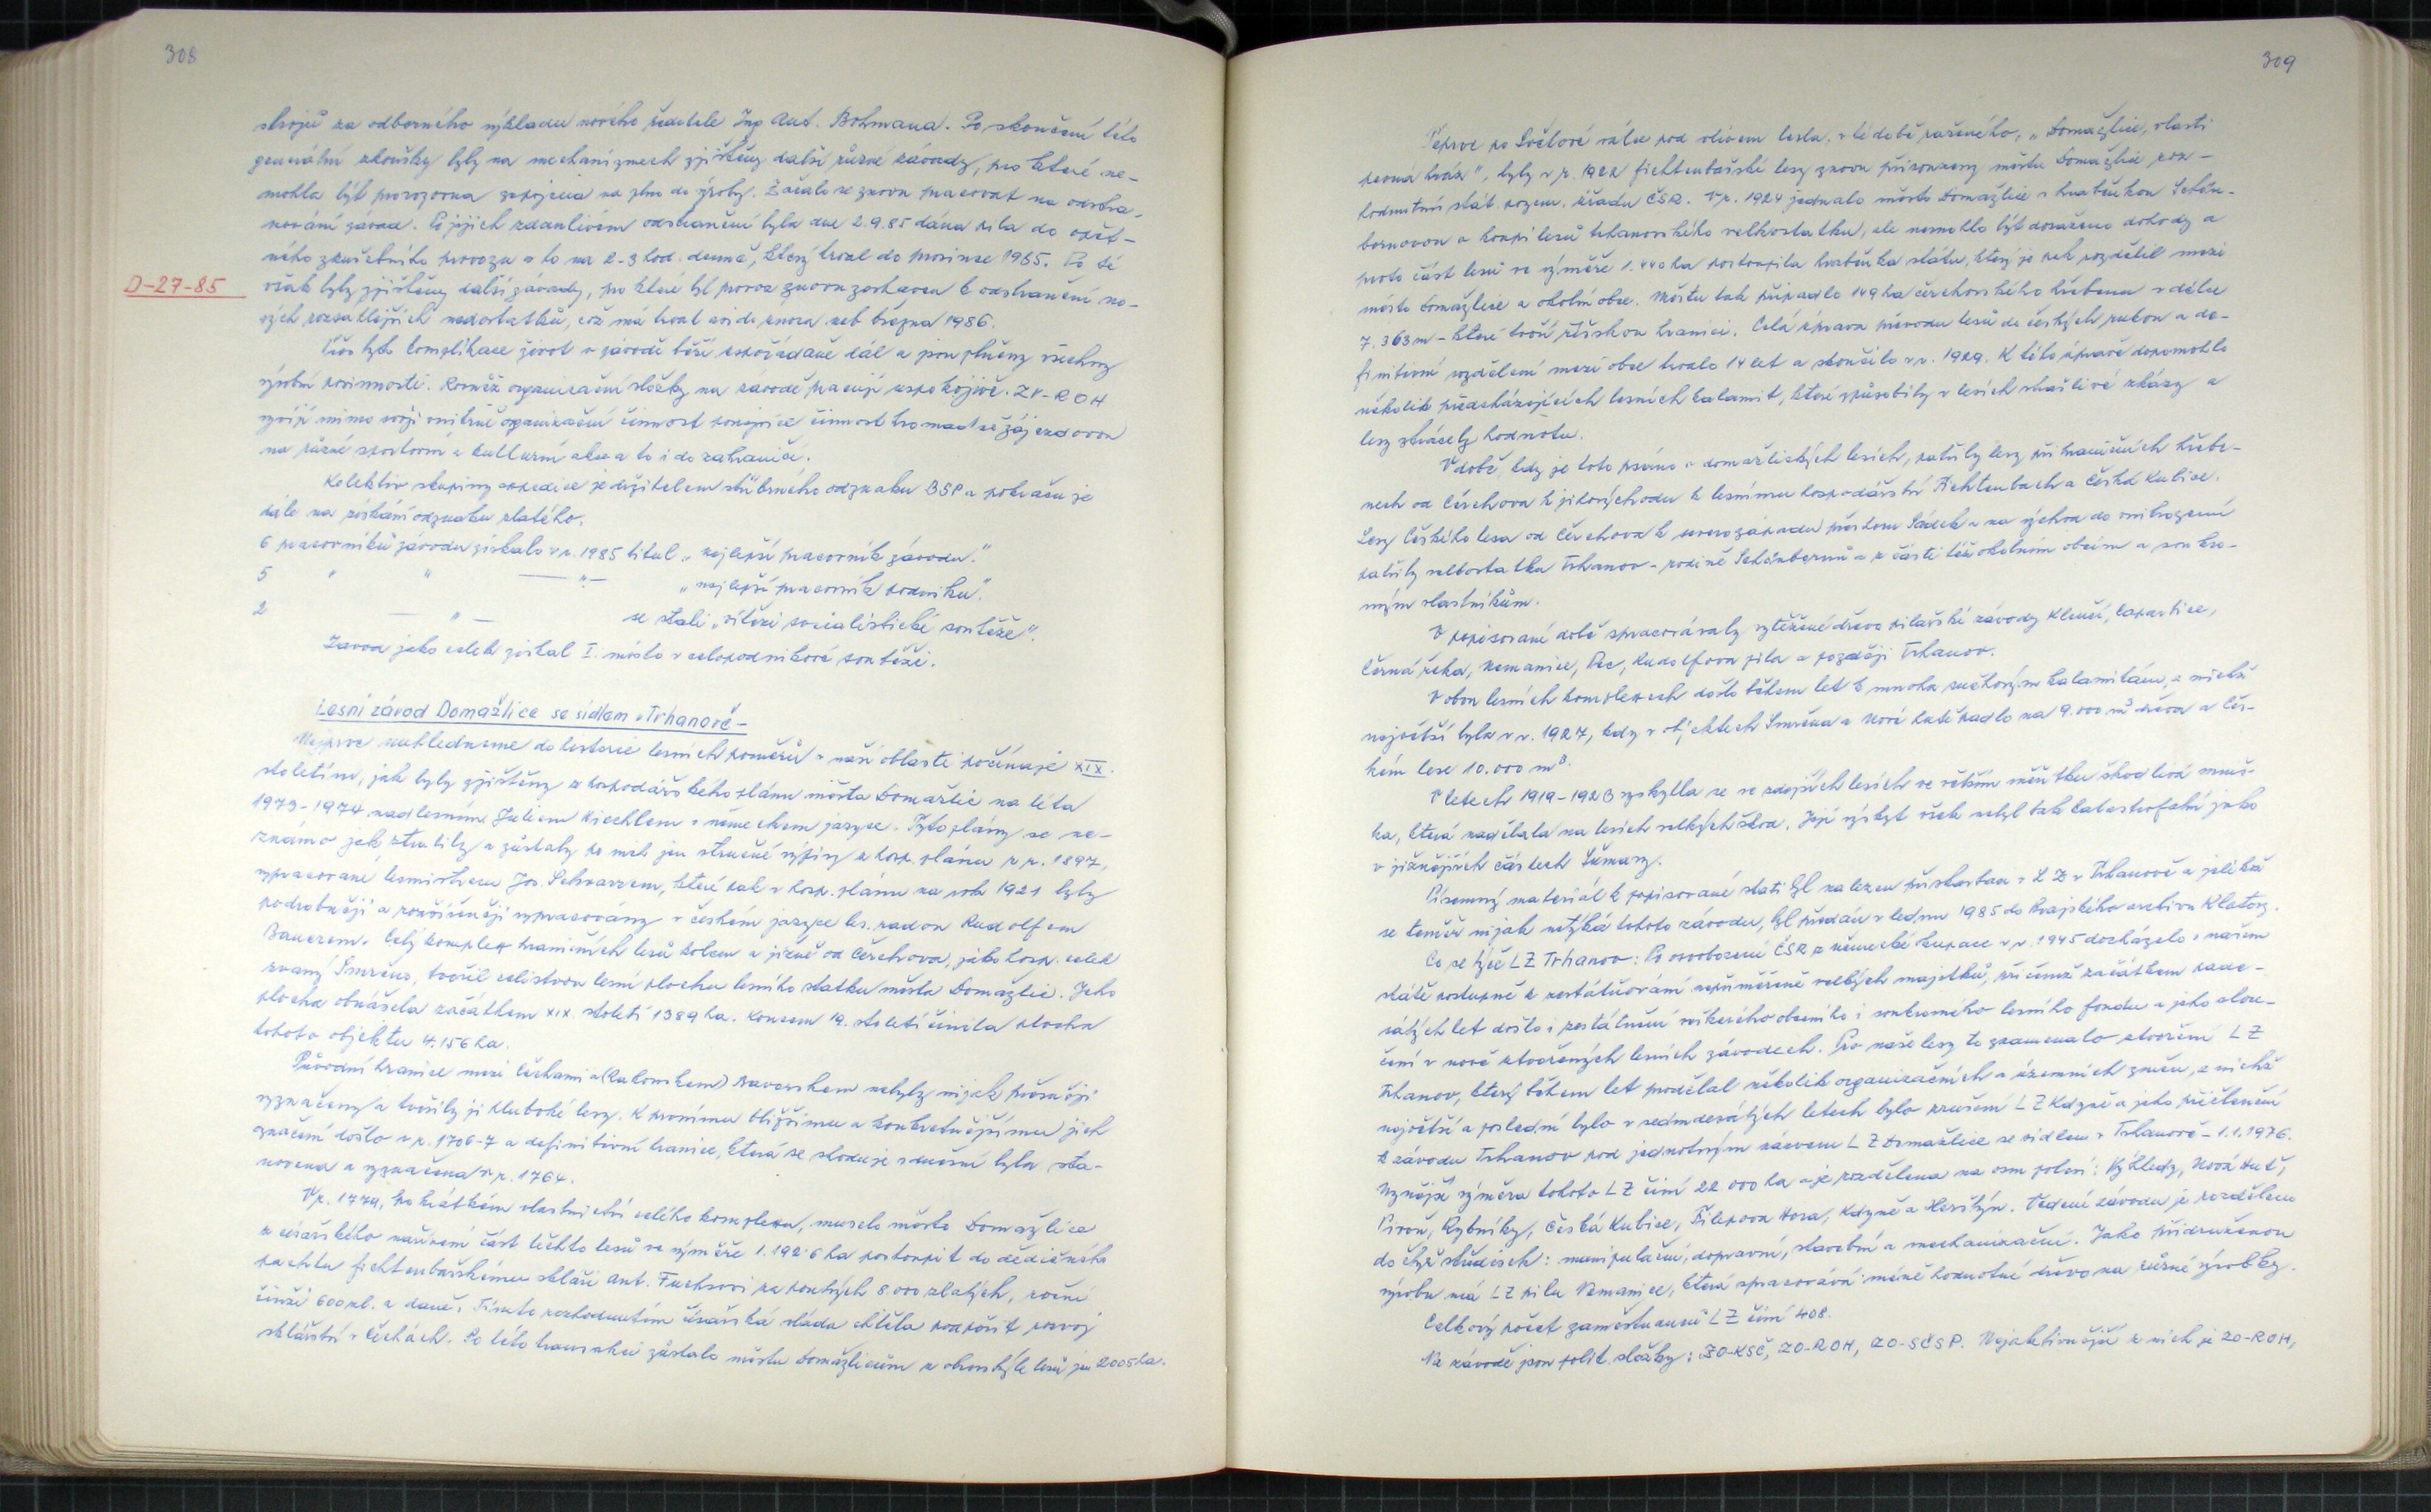 308
strojů za odborného výkladu nového ředitele Ing Ant. Bohmana. Po skončení této
generální zkoušky byly na mechanizmech zjištěny další různé závady, pro které ne-
mohla být provozovna zapojena na plno do výroby. Začalo se znovu pracovat na odstra-
ňování závad. Po jejich zdánlivém odstranění byla dne 2.9.85 dána pila do opět-
ného zkušebního provozu a to na 2-3 hod. denně, který trval do prosince 1985. Po té
D-27-85
však byly zjištěny další závady, pro které byl provoz znovu zastaven k odstranění no-
vých rozsáhlejších nedostatků, což má trvat asi do února neb března 1986.
Přes tyto komplikace život v závodě běží uspořádaně dál a jsou plněny všechny
výrobní povinnosti. Rovněž organizační složky na závodě pracují uspokojivě. ZV-ROH
vyvíjí mimo svoji vnitřně organizační činnost činnost hromadné zájezdovou
na různé sportovní a kulturní akce a to i do zahraničí.
Kolektiv skupiny expedice je držitelem stříbrného odznaku BSP a pokračuje
dále na získání odznaku zlatého.
6 pracovníků závodu získalo v r. 1985 titul „nejlepší pracovník závodu."
5 " " —"— „nejlepší pracovník podniku".
2 —"— se stali „vítězi socialistické soutěže".
Závod jako celek získal I. místo v celopodnikové soutěži.
Lesní závod Domažlice se sídlem v Trhanově -
Nejprve nahlédneme do historie lesních poměrů v naší oblasti počínaje XIX.
stoletím, jak byly zjištěny z hospodářského plánu města Domažlic na léta
1973-1974 nadlesním Juliem Wiechlem v německém jazyce. Tyto plány se ne-
známo jak ztratily a zůstaly po nich jen stručné výpisy z hosp. plánu z r. 1897,
vypracované lesmistrem Jos. Schwarzem, které pak v hosp. plánu na rok 1921 byly
podrobněji a rozšířeněji vypracovány v českém jazyce les. radou Rudolfem
Bauerem. Celý komplex hraničních lesů kolem a jižně od Čerchova, jako hosp. celek
zvaný Smrčno, tvořil celistvou lesní plochu lesního statku města Domažlic. Jeho
plocha obnášela začátkem XIX. století 1389 ha. Koncem 19. století činila plocha
tohoto objektu 4.156 ha.
Původní hranice mezi Čechami a (Rakouskem) Bavorskem nebyly nijak přesněji
vyznačeny a tvořily ji hluboké lesy. K prvnímu bližšímu a konkretnějšímu jich
značení došlo v r. 1706-7 a definitivní hranice, která se shoduje s dnešní byla sta-
novena a vyznačena v r. 1764.
V r. 1779, po krátkém vlastnictví celého komplexu, muselo město Domažlice
z císařského nařízení část těchto lesů ve výměře 1.192·6 ha postoupit do dědičného
pachtu fichtenbašskému skláři Ant. Fuchsovi za pouhých 8.000 zlatých, roční
činži 600 zl. a daně. Tímto rozhodnutím císařská vláda chtěla podpořit rozvoj
sklářství v Čechách. Po této transakci zůstalo městu Domažlicům z obvyklé lesů jen 2005 ha.
309
Teprve po Světové válce pod vlivem hesla, v té době raženého, „Domažlice, vlasti
pevná hráz", byly v r. 1922 fichtenbašské lesy znovu přisouzeny městu Domažlice roz-
hodnutím stát. pozem. úřadu ČSR. V r. 1924 jednalo město Domažlice s hraběnkou Schön-
bornovou o koupi lesů trhanovského velkostatku, ale nemohlo být dosaženo dohody a
proto část lesů ve výměře 1.440 ha postoupila hraběnka státu, který je pak rozdělil mezi
město Domažlice a okolní obce. Městu tak připadlo 149 ha čerchovského hřebenu v délce
7.363 m - které tvoří říšskou hranici. Celá úprava převodu lesů do českých rukou a de-
finitivní rozdělení mezi obce trvalo 14 let a skončilo v r. 1929. K této úpravě dopomohlo
několik předcházejících lesních kalamit, které způsobily v lesích strašlivé zkázy a
lesy ztrácely hodnotu.
V době, kdy je toto psáno o domažlických lesích, patřily lesy při hraničních hřebe-
nech od Čerchova k jihovýchodu k lesnímu hospodářství Fichtenbach a Česká Kubice.
Lesy Českého lesa od Čerchova k severozápadu přes hom Sádek a na východ do vnitrozemí
patřily velkostatku Trhanov - rodině Schönbornů a z části též okolním obcím a soukro-
mým vlastníkům.
V popisované době spracovávaly vytěžené dřevo pilařské závody Klenčí, Capartice,
Černá řeka, Nemanice, Pec, Rudolfova pila a později Trhanov.
V obou lesních komplexech došlo během let k mnoha sněhovým kalamitám, z nichž
největší byla v r. 1927, kdy v objektech Smrčna a Nové Hutě padlo na 9.000 m³ dřeva a Čes-
kém lese 10.000 m³.
V letech 1919-1923 vyskytla se ve zdejších lesích ve větším měřítku škodlivá mniš-
ka, která nadělala na lesích velkých škod. Její výskyt však nebyl tak katastrofální jako
v jižnějších částech Šumavy.
Písemný materiál k popisované stati byl nalezen při skartaci v LZ v Trhanově a jelikož
se téměř nijak netýká tohoto závodu, byl předán v lednu 1985 do Krajského archivu Klatovy.
Co se týče LZ Trhanov: Po osvobození ČSR z německé okupace v r. 1945 docházelo v našem
státě postupně k zestátňování nepřiměřeně velkých majetků, při čemž začátkem pade-
sátých let došlo i zestátnění veškerého obecního i soukromého lesního fondu a jeho slou-
čení v nově utvořených lesních závodech. Pro naše lesy to znamenalo utvoření LZ
Trhanov, který během let prodělal několik organizačních a územních změn, z nichž
největší a poslední bylo v sedmdesátých letech bylo zrušení LZ Kdyně a jeho přičlenění
k závodu Trhanov pod jednotným názvem LZ Domažlice se sídlem v Trhanově - 1.1.1976.
Nynější výměra tohoto LZ činí 22.000 ha a je rozdělena na osm polesí: Výhledy, Nová Huť,
Pivoň, Rybníky, Česká Kubice, Fílipova Hora, Kdyně a Herštýn. Vedení závodu je rozděleno
do čtyř středisek: manipulační, dopravní, stavební a mechanizační. Jako přidruženou
výrobu má LZ pilu Nemanice, která spracovává méně hodnotné dřevo na různé výrobky.
Celkový počet zaměstnanců LZ činí 408.
Na závodě jsou polit. složky: ZO-KSČ, ZO-ROH, ZO-SČSP. Nejaktivnější z nich je ZO-ROH,